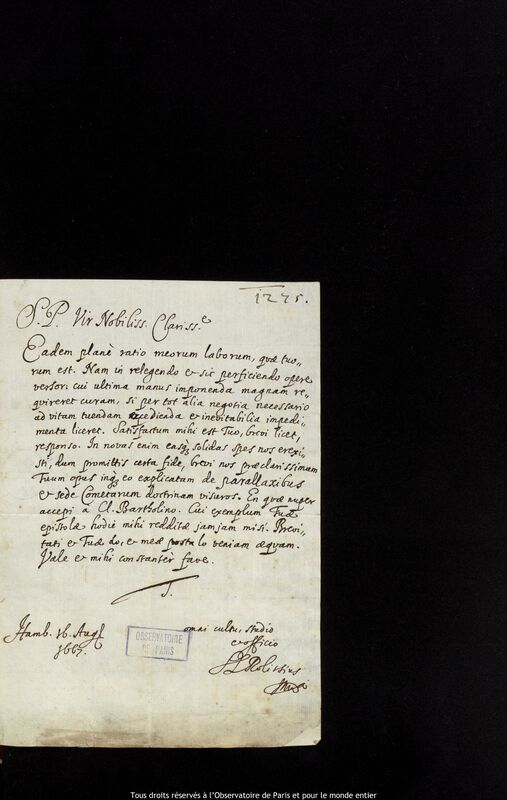 1275.
S. P. Vir Nobiliss. Clariss.e
Eadem planè ratio meorum laborum, quæ tuo„
rum est. Nam in relegendo & sic perficiendo opere
versor: cui ultima manus imponenda magnam re„
quireret curam, si per tot alia negotia necessario
ad vitam tuendam expedienda & inevitabilia impedi„
menta liceret. Satisfactum mihi est Tuo, brevi licet,
responso. In novas enim easq; solidas spes nos erexi„
sti, dum promittis certa fide, brevi nos præclarissimam
Tuum opus inq; eo explicatam de parallaxibus
& sede Cometarum doctrinam visuros. En quæ nuper
accepi à Cl. Bartholino. Cui exemplum Tuæ
epistolæ hodie mihi redditæ jamjam misi. Brevi„
tati & Tuæ do, & meæ postulo veniam æquam.
Vale & mihi constanter fave.
T.
omni cultu, studio
& officio
Hamb. 16. Aug.
1667.
OBSERVATOIRE
DE PARIS
Tous droits réservés à l'Observatoire de Paris et pour le monde entier